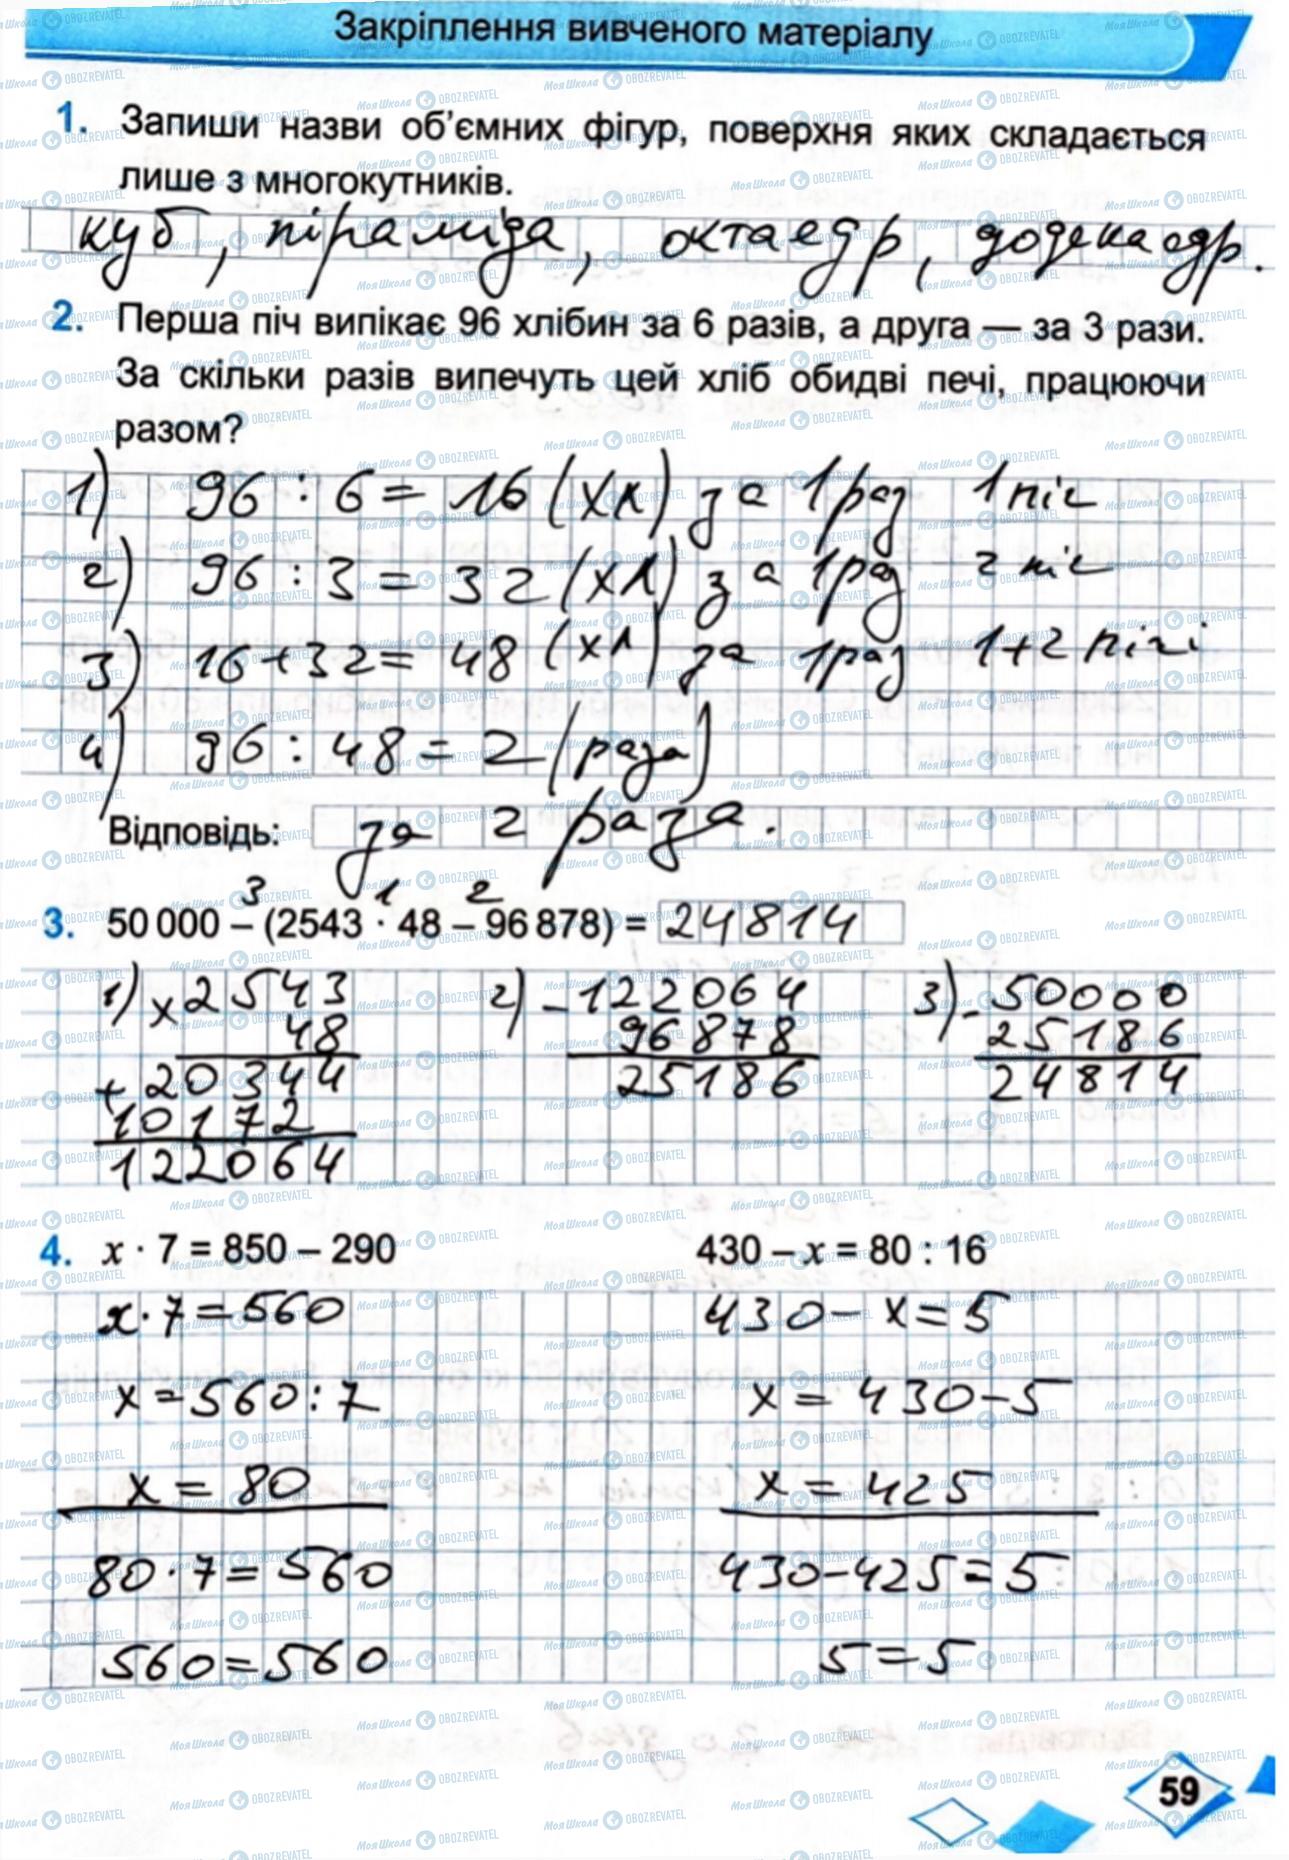 Закріплення вивченого матеріалу
1. Запиши назви об'ємних фігур, поверхня яких складається
лише з многокутників.
куб, піраміда, октаедр, додекаедр.
2. Перша піч випікає 96 хлібин за 6 разів, а друга — за 3 рази.
За скільки разів випечуть цей хліб обидві печі, працюючи
разом?
1) 96 : 6 = 16 (хл) за 1 раз 1 піч
2) 96 : 3 = 32 (хл) за 1 раз 2 піч
3) 16+32= 48 (хл) за 1 раз 1+2 пічі
4) 96 : 48 = 2 (раза)
Відповідь: за 2 раза.
3 1 2
3. 50 000 – (2543 · 48 – 96 878) = 24814
1) × 2543 2) – 122064 3) – 50000
48 96878 25186
+ 20344 25186 24814
10172
122064
4. x · 7 = 850 – 290 430 – x = 80 : 16
x · 7 = 560 430 – x = 5
x = 560 : 7 x = 430 – 5
x = 80 x = 425
80 · 7 = 560 430 – 425 = 5
560 = 560 5 = 5
59
МояШкола OBOZREVATEL